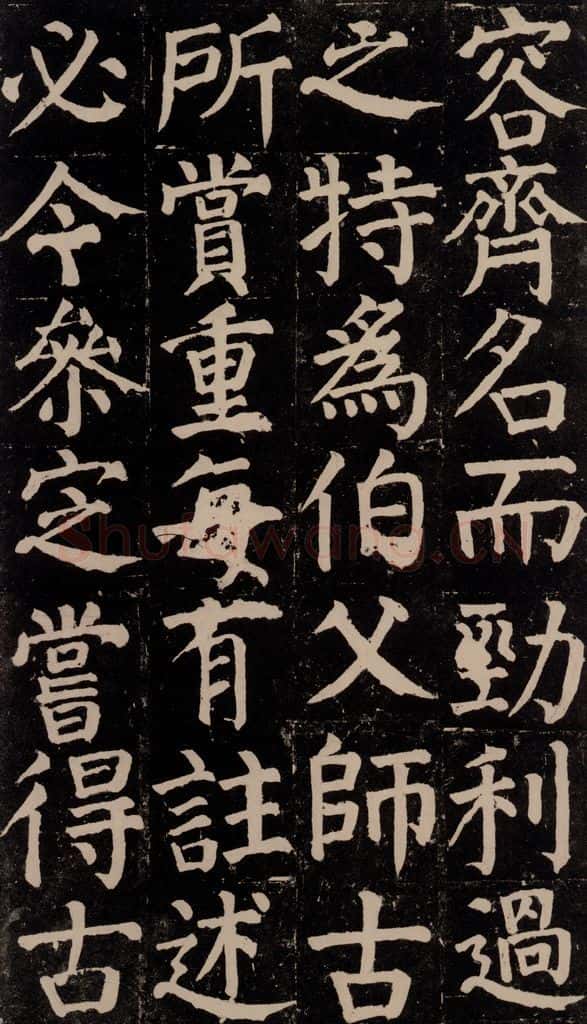 容齊名而勁利過
之特為伯父師古
所賞重每有註述
必令參定嘗得古
Shufawang.CN